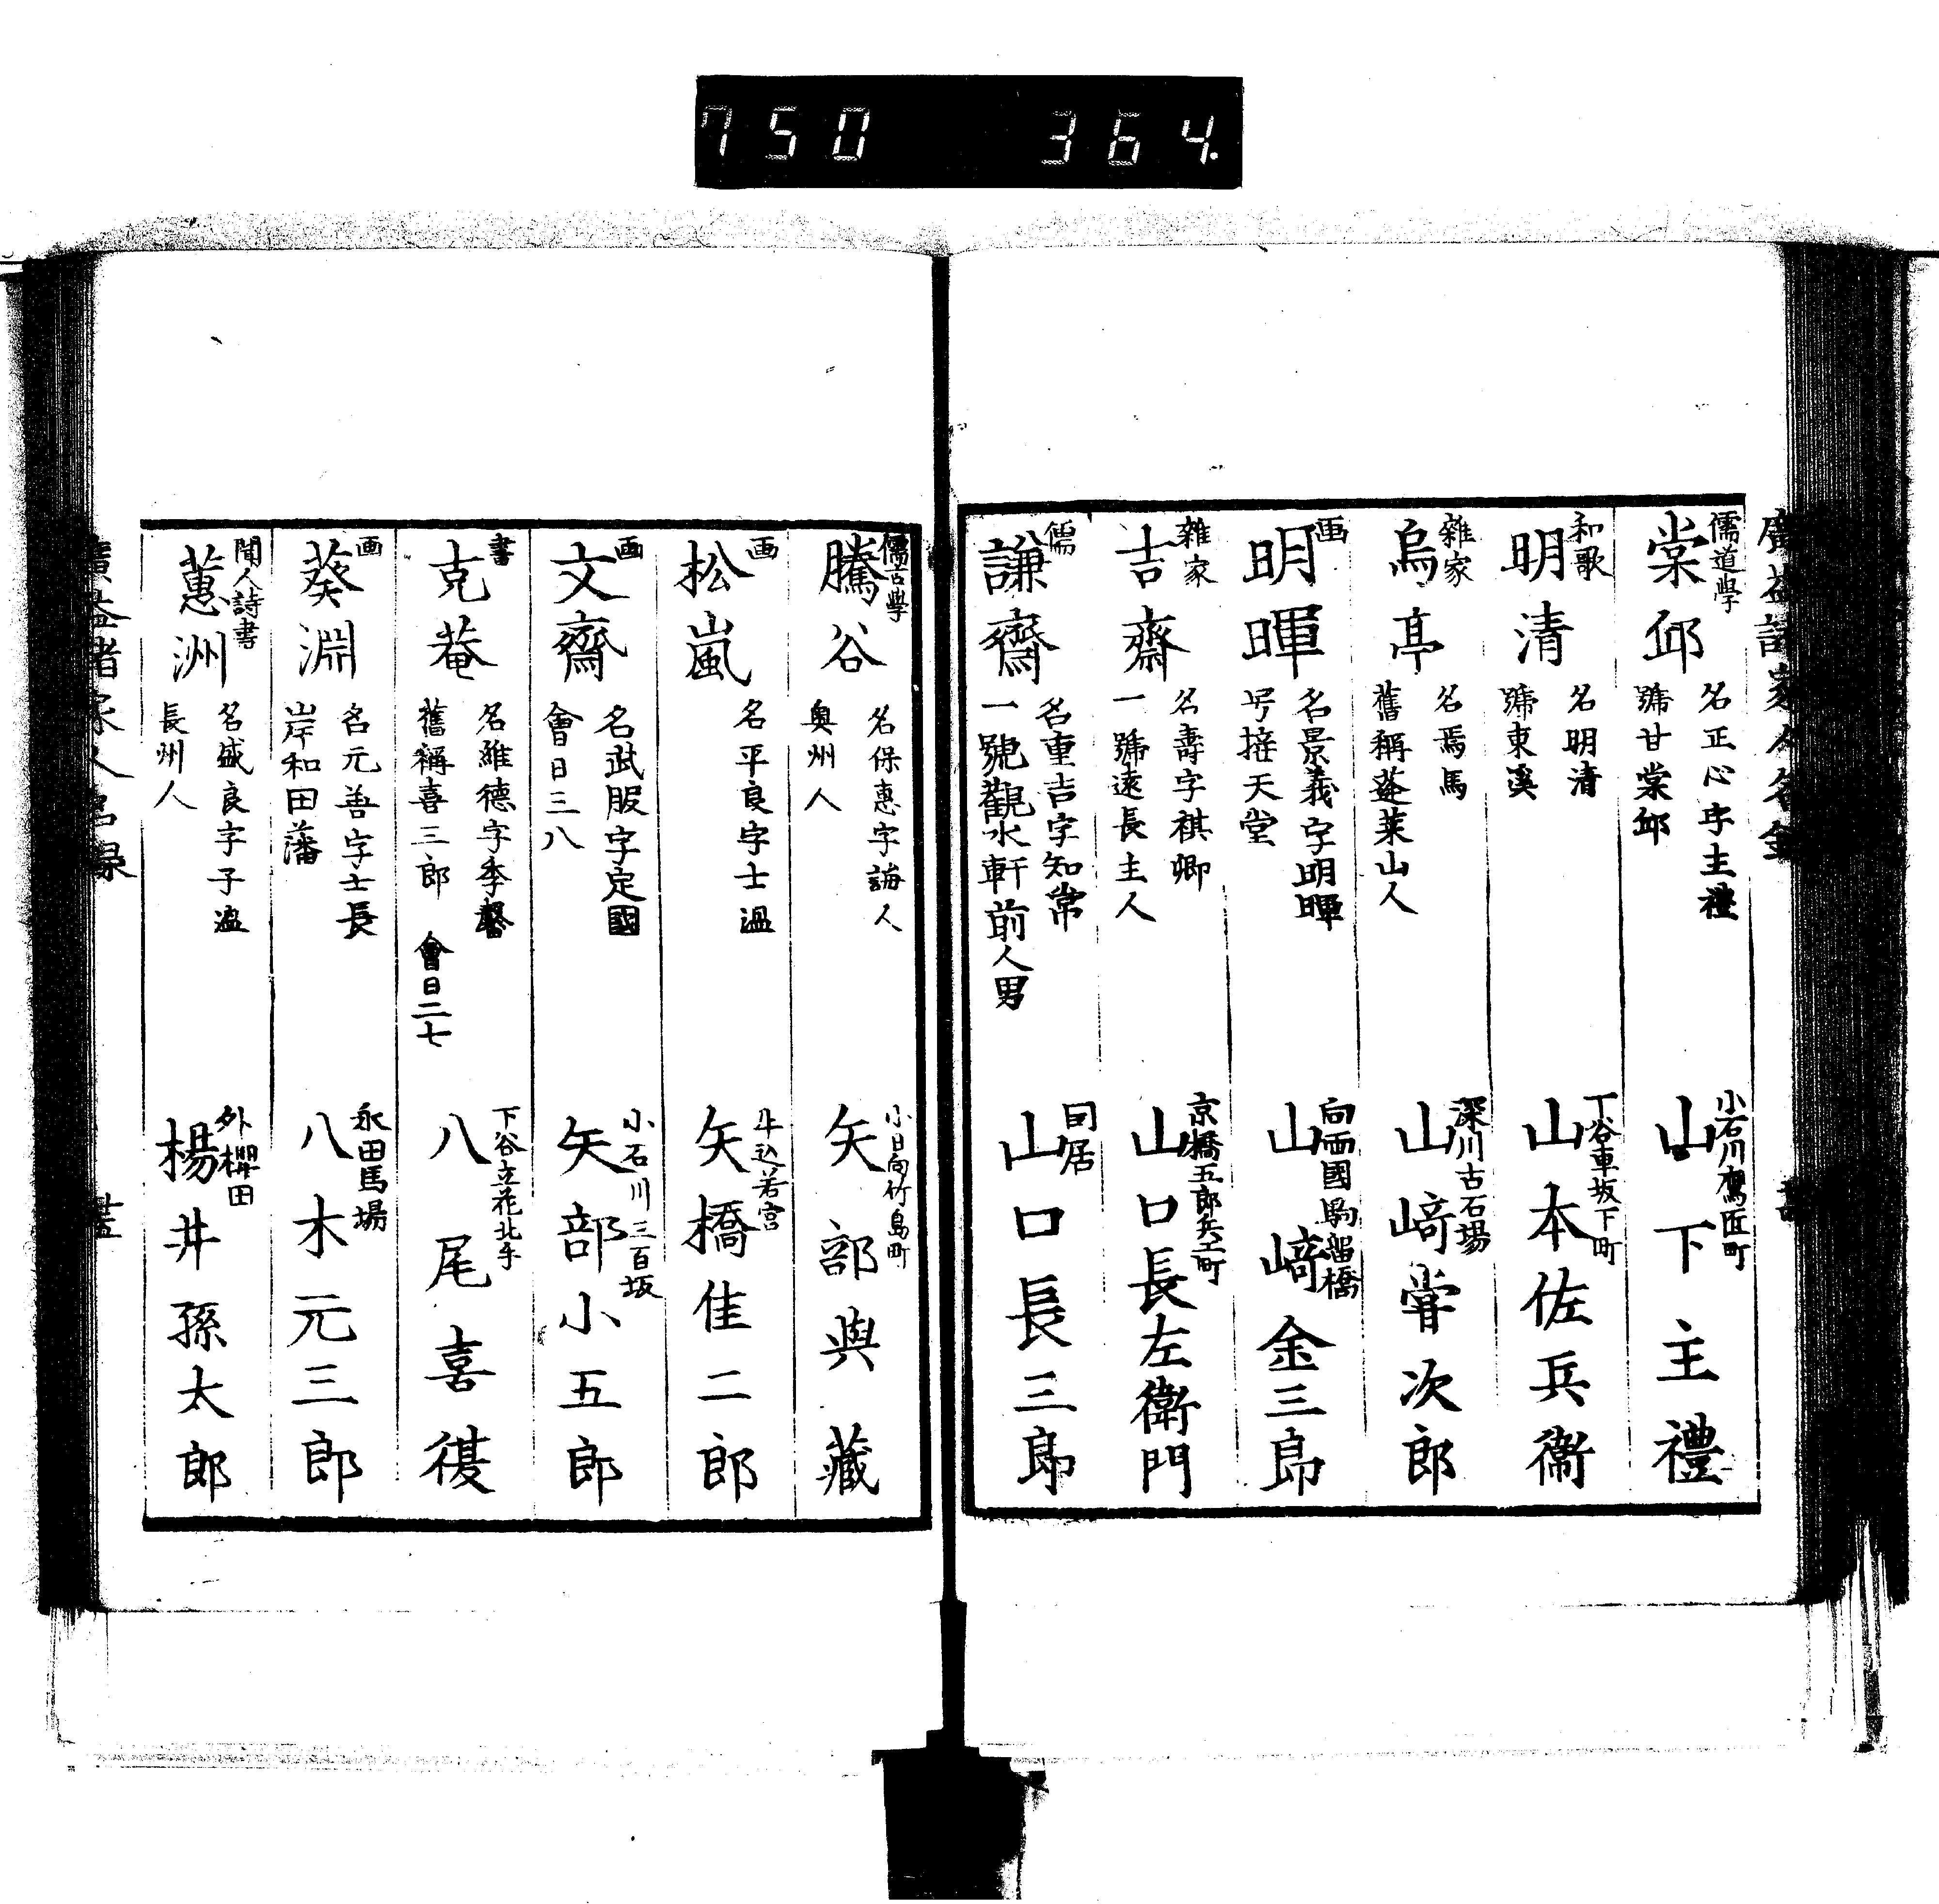 750 364.
儒道學
棠邱
名正心字主禮
號甘棠邱
小石川鷹匠町
山下主禮
和歌
明清
名明清
號東溪
下谷車坂下町
山本佐兵衞
雜家
烏亭
名焉馬
舊稱蓬莱山人
深川古石場
山﨑甞次郎
画
明暉
名景義字明暉
号接天堂
向両國駒留橋
山﨑金三郎
雜家
吉齋
名壽字祺卿
一號遠長主人
京橋五郎兵エ町
山口長左衞門
儒
謙齋
名重吉字知常
一號觀水軒前人男
同居
山口長三郎
儒古學
騰谷
名保惠字誨人
奥州人
小日向竹島町
矢部與藏
画
松嵐
名平良字士温
牛込若宮
矢橋佳二郎
画
文齋
名武服字定國
會日三八
小石川三百坂
矢部小五郎
書
克菴
名維德字季馨
舊稱喜三郎 會日二七
下谷立花北手
八尾喜復
画
葵淵
名元善字士長
岸和田藩
永田馬場
八木元三郎
聞人詩書
蕙洲
名盛良字子温
長州人
外櫻田
楊井孫太郎
廣益諸家人名録